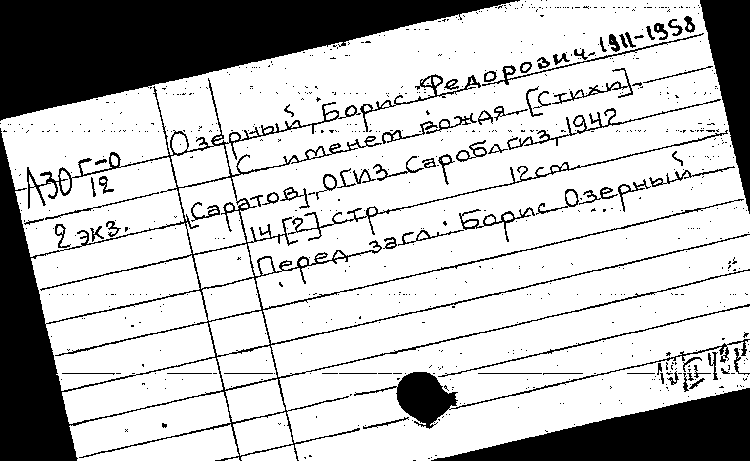 Озерный, Борис Федорович. 1911-1958
С именем вождя. [Стихи].
[Саратов], ОГИЗ Сароблгиз, 1942
14, [2] стр. 12 см.
Перед загл.: Борис Озерный
Л30 Г-0
12
2 экз.